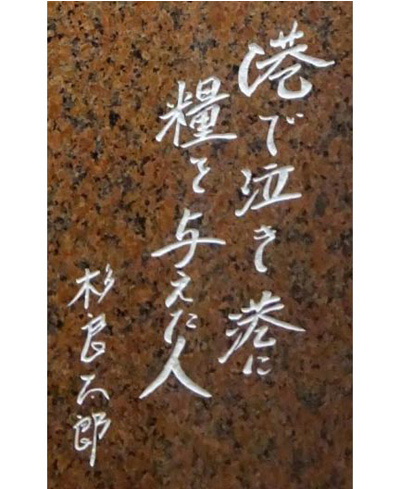 港で泣き港に
糧を与えた人
杉良太郎